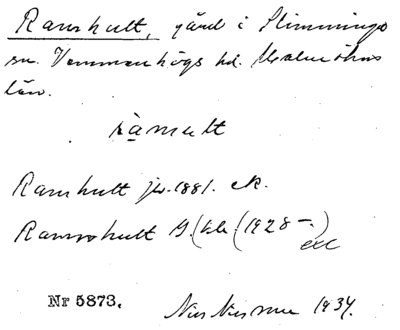 Ramhult, gård i Slimminge
sn. Vemmenhögs hd. Malmöhus
län.
ramult
Ramhult jb. 1881. ek.
Ramshult G. (1928-)
Nr 5873.
1934.